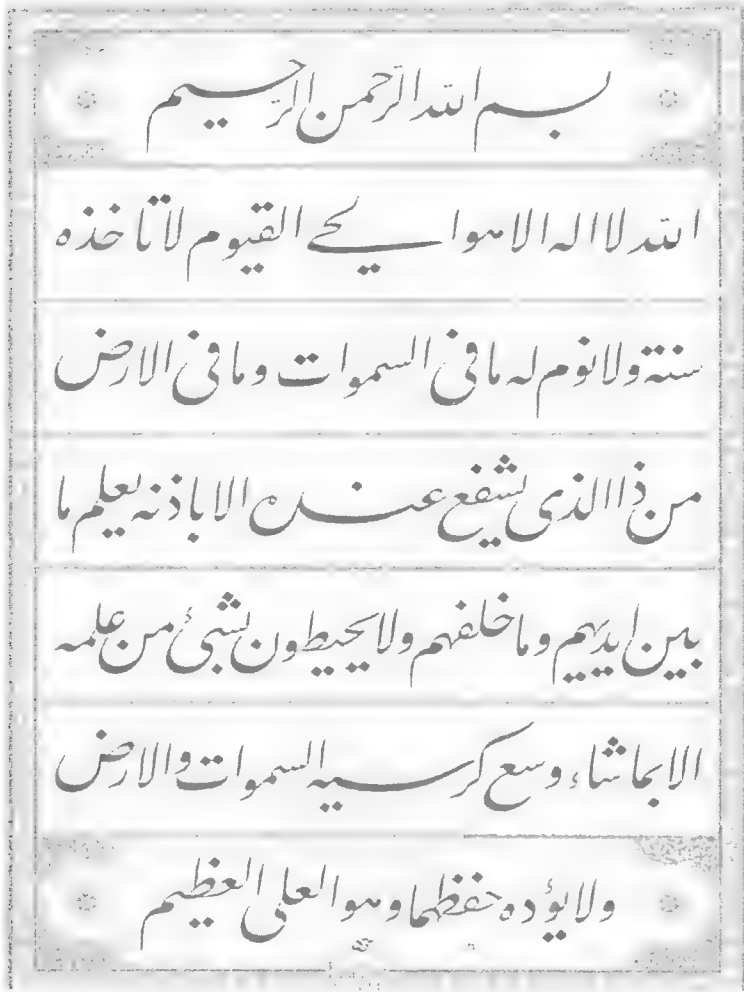 بسم الله الرحمن الرحيم
الله لا اله الا هو الحي القيوم لا تاخذه
سنة ولا نوم له ما في السموات وما في الارض
من ذا الذي يشفع عنده الا باذنه يعلم ما
بين ايديهم وما خلفهم ولا يحيطون بشيئ من علمه
الا بما شاء وسع كرسيه السموات والارض
ولا يؤده حفظهما وهو العلي العظيم